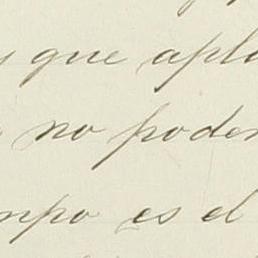 que apla
no poder
mpo es el